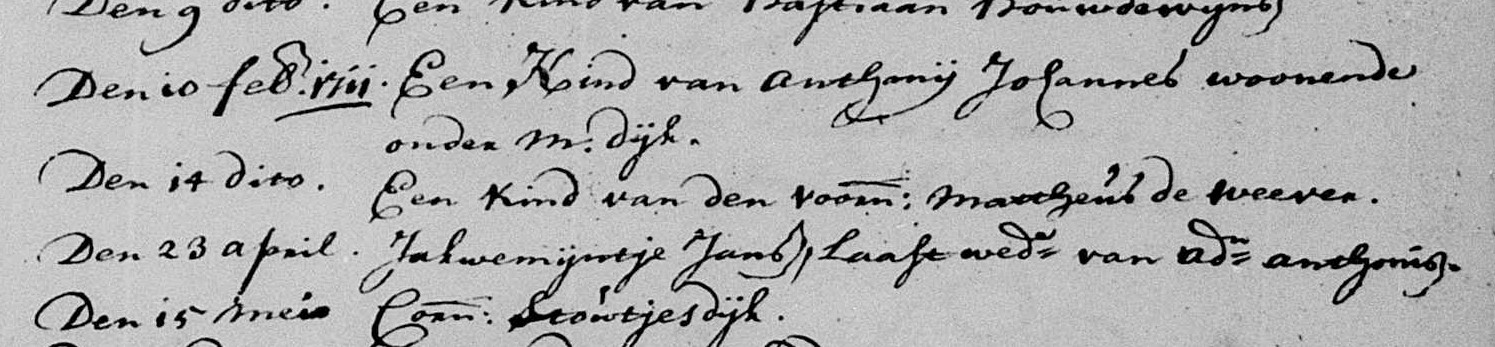 Den 9 dito. Een Kind van Bastiaan Bouwdewijns
Den 10 feb. 1711. Een Kind van Anthonij Johannes woonende
onder M. dijk.
Den 14 dito. Een Kind van den voorn: Mattheus de Weever.
Den 23 April. Jakwemijntje Jans, laast wed. van Ad. Anthonis.
Den 15 Meis Corn: Stouwtjesdijk.